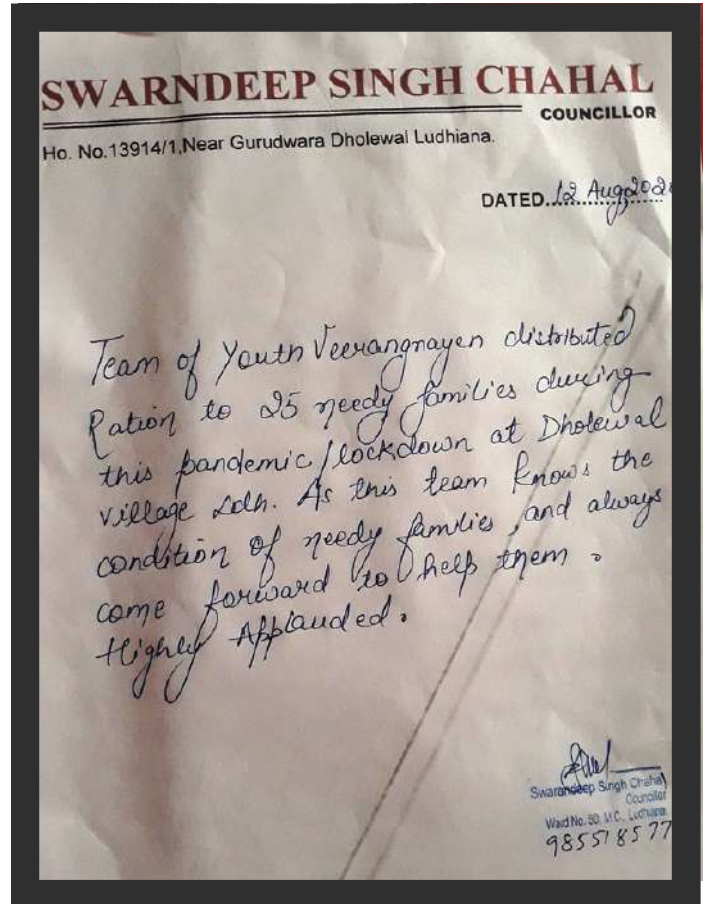 SWARNDEEP SINGH CHAHAL
COUNCILLOR
Ho. No.13914/1,Near Gurudwara Dholewal Ludhiana.
DATED...12 Aug,202
Team of Youth Veerangnayen distributed
Ration to 25 needy families during
this pandemic/lockdown at Dholewal
village Ldh. As this team knows the
condition of needy families, and always
come forward to help them.
Highly Applauded.
Swarandeep Singh Chahal
Councillor
Ward No. 50, M.C., Ludhiana
985518577